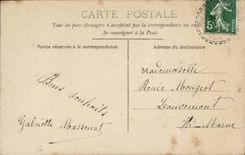 CARTE POSTALE
Tous les pays étrangers n'acceptent pas la correspondance au
Se renseigner à la Poste
Partie réservée à la correspondance
Adresse du destinataire
Mademoiselle
Renée Mongeot
Louvemont
Hte Marne
Bons souhaits
Gabrielle Massenat
5